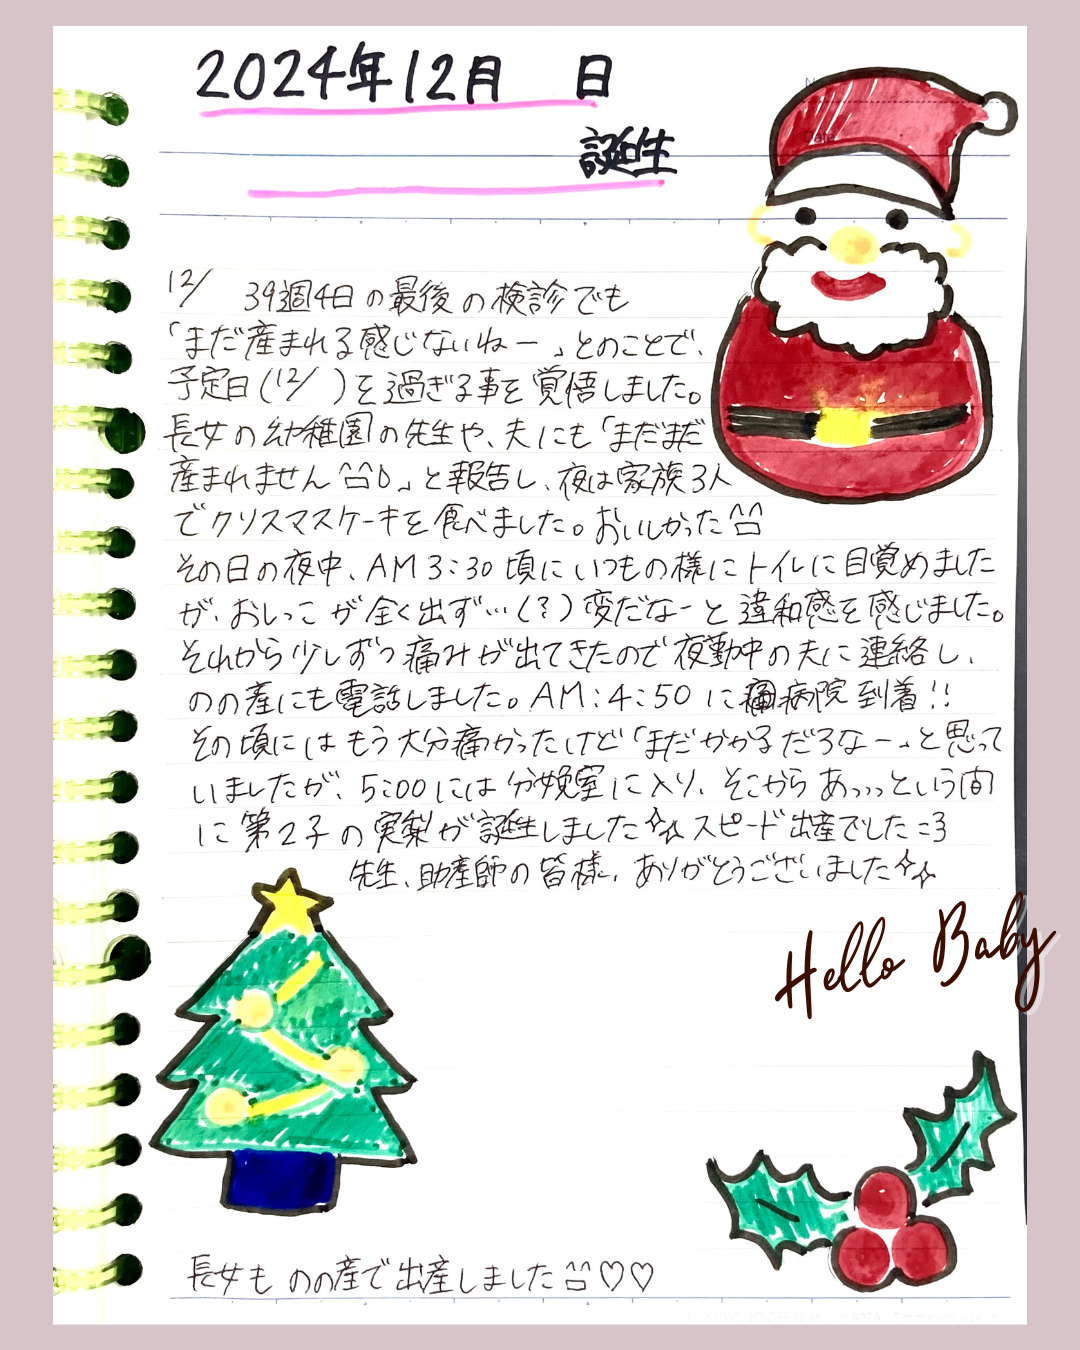 2024年12月　日
誕生
12/　39週4日の最後の検診でも
「まだ産まれる感じないねー」とのことで、
予定日(12/　)を過ぎる事を覚悟しました。
長女の幼稚園の先生や、夫にも「まだまだ
産まれません^^💧」と報告し、夜は家族3人
でクリスマスケーキを食べました。おいしかった^^
その日の夜中、AM3:30頃にいつもの様にトイレに目覚めました
が、おしっこが全く出ず…(?)変だなーと違和感を感じました。
それから少しずつ痛みが出てきたので夜勤中の夫に連絡し、
のの産にも電話しました。AM:4:50に病院到着!!
その頃にはもう大分痛かったけど「まだかかるだろなー」と思って
いましたが、5:00には分娩室に入り、そこからあっっっという間
に第2子の実梨が誕生しました✨スピード出産でした=3
先生、助産師の皆様、ありがとうございました✨
Hello Baby
長女ものの産で出産しました^^♡♡